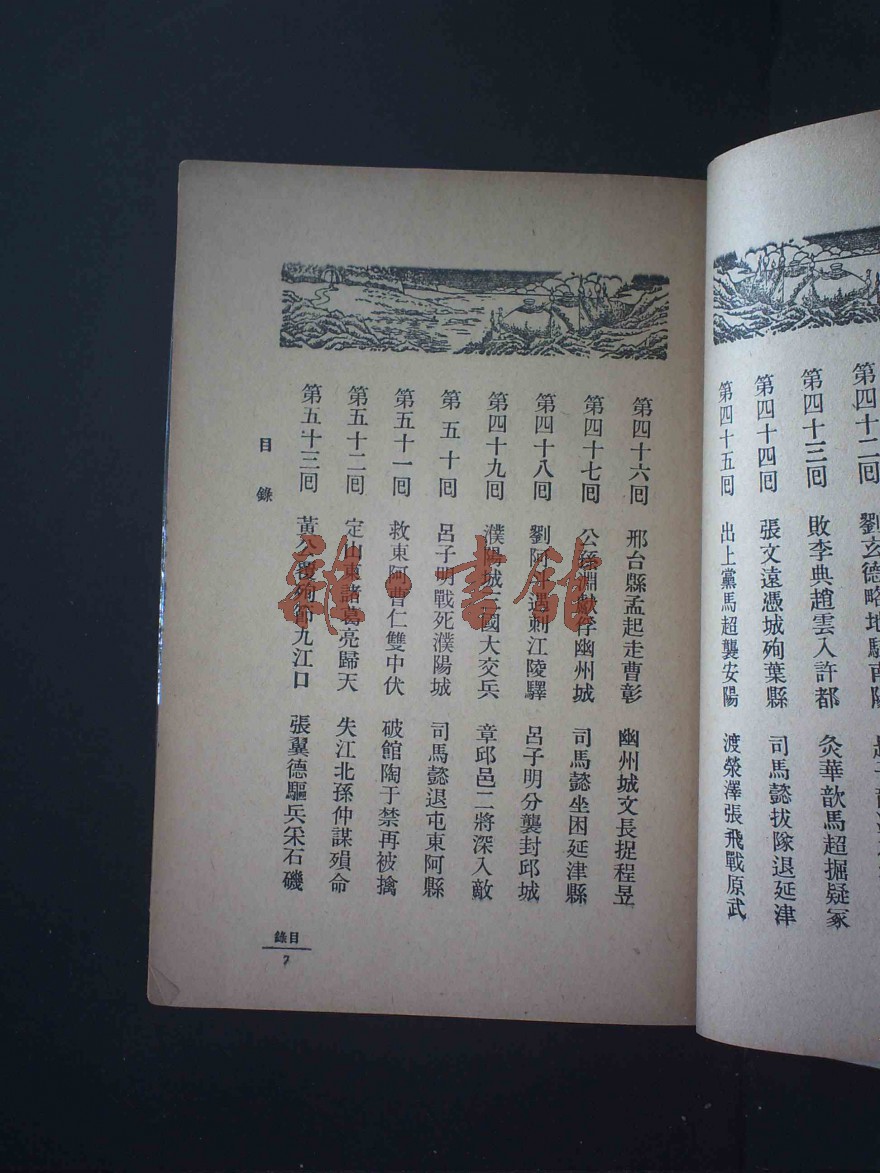 第四十二回 劉玄德略地
第四十三回 敗李典趙雲入許都 灸華歆馬超掘疑冢
第四十四回 張文遠憑城殉葉縣 司馬懿拔隊退延津
第四十五回 出上黨馬超襲安陽 渡滎澤張飛戰原武
第四十六回 邢台縣孟起走曹彰 幽州城文長捉程昱
第四十七回 公孫淵獻俘幽州城 司馬懿坐困延津縣
第四十八回 劉阿斗遇刺江陵驛 呂子明分襲封邱城
第四十九回 濮陽城三國大交兵 章邱邑二將深入敵
第五十回 呂子明戰死濮陽城 司馬懿退屯東阿縣
第五十一回 救東阿曹仁雙中伏 破館陶于禁再被擒
第五十二回 定山東諸葛亮歸天 失江北孫仲謀殞命
第五十三回 黃公覆殉節九江口 張翼德驅兵采石磯
目錄
目錄
7
雜·書館